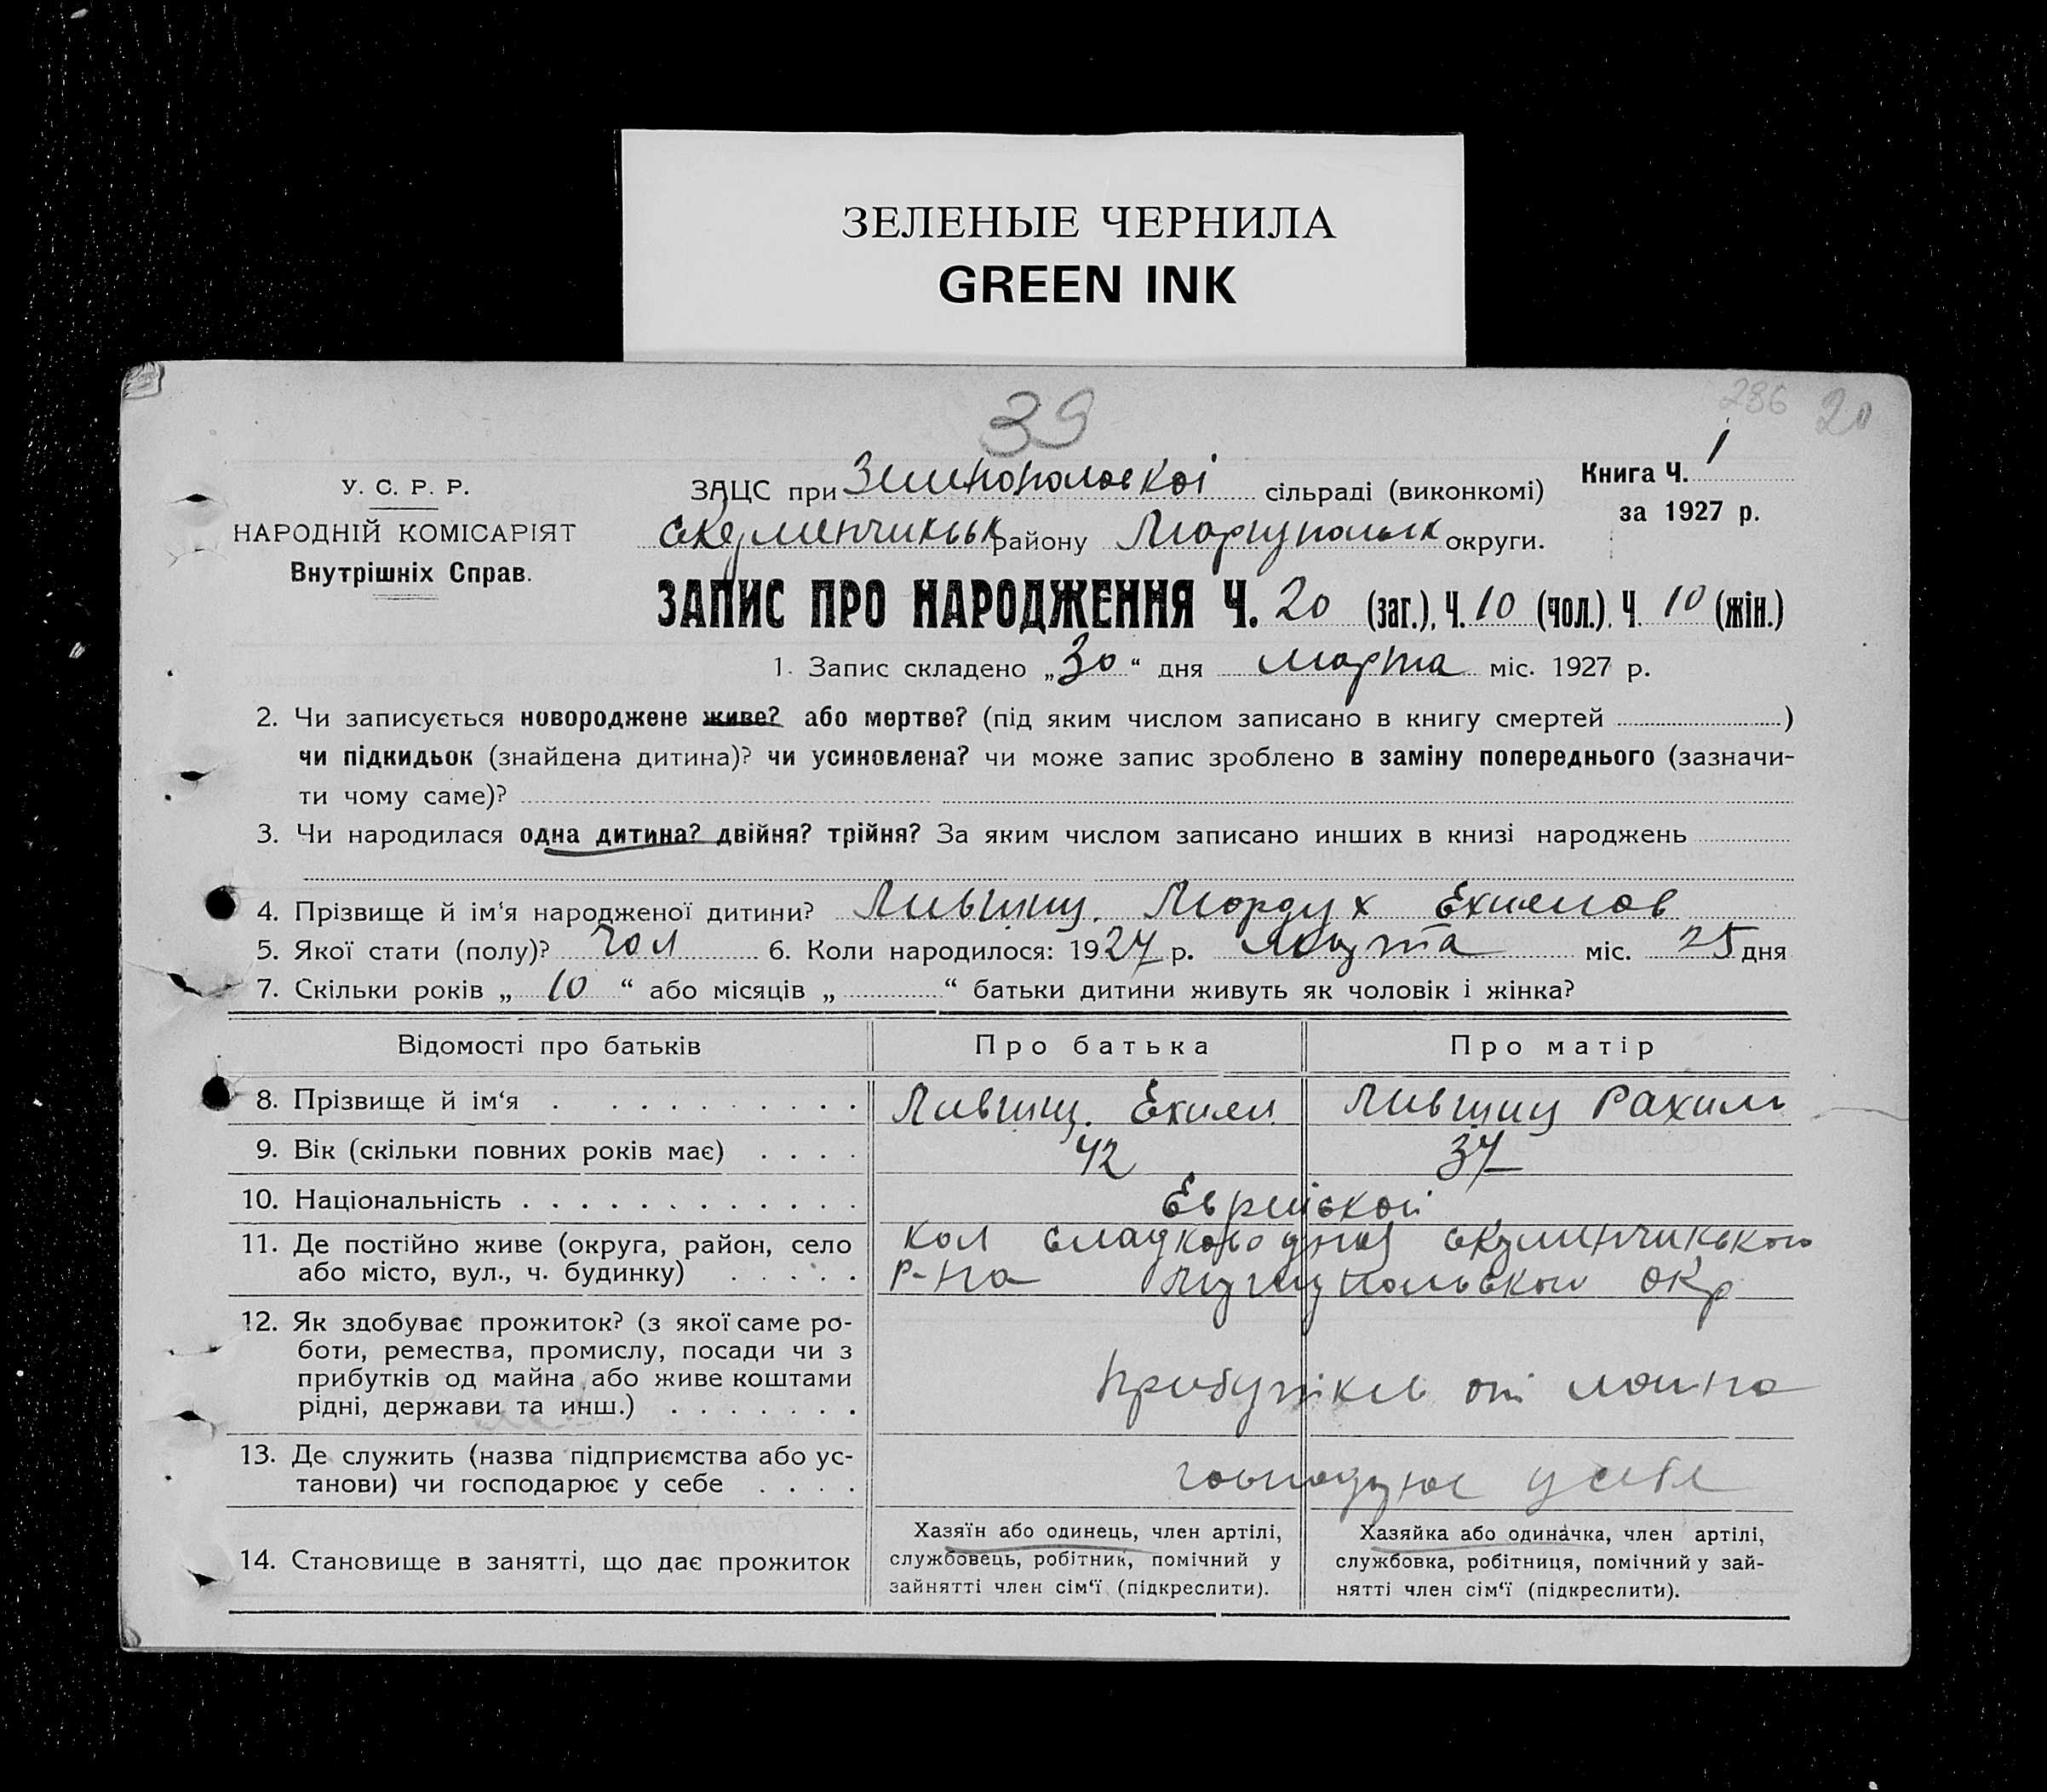 ЗЕЛЕНЫЕ ЧЕРНИЛА
GREEN INK
39
286 20
У. С. Р. Р.
НАРОДНІЙ КОМІСАРІЯТ
Внутрішніх Справ.
ЗАЦС при сільраді (виконкомі)
району Маріупольськ округи.
Книга Ч. 1
за 1927 р.
ЗАПИС ПРО НАРОДЖЕННЯ Ч. 20 (заг.), Ч. 10 (чол.). Ч. 10 (жін.)
1. Запис складено „30“ дня марта міс. 1927 р.
2. Чи записується новороджене живе? або мертве? (під яким числом записано в книгу смертей )
чи підкидьок (знайдена дитина)? чи усиновлена? чи може запис зроблено в заміну попереднього (зазначи-
ти чому саме)?
3. Чи народилася одна дитина? двійня? трійня? За яким числом записано инших в книзі народжень
4. Прізвище й ім‘я народженої дитини? Лившиц. Мордух Ехилев
5. Якої стати (полу)? Чол 6. Коли народилося: 1927 р. марта міс. 25 дня
7. Скільки років „ 10 “ або місяців „ “ батьки дитини живуть як чоловік і жінка?
Відомості про батьків Про батька Про матір
8. Прізвище й ім‘я Лившиц. Ехиел Лившиц Рахиль
9. Вік (скільки повних років має) 42 37
10. Національність Еврейской
11. Де постійно живе (округа, район, село кол
або місто, вул., ч. будинку) р-на окр
12. Як здобуває прожиток? (з якої саме ро-
боти, ремества, промислу, посади чи з
прибутків од майна або живе коштами
рідні, держави та инш.) от майна
13. Де служить (назва підприємства або ус-
танови) чи господарює у себе у себе
14. Становище в занятті, що дає прожиток
Хазяїн або одинець, член артілі,
службовець, робітник, помічний у
зайнятті член сім‘ї (підкреслити).
Хазяйка або одиначка, член артілі,
службовка, робітниця, помічний у зай-
нятті член сім‘ї (підкреслити).